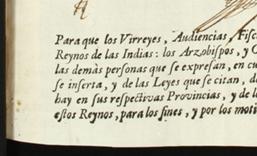 Para que los Virreyes, Audiencias, Fisc
Reynos de las Indias: los Arzobispos, y O
las demàs personas que se expresan, en cu
se inserta, y de las Leyes que se citan, d
hay en sus respectivas Provincias, y de l
estos Reynos, para los fines, y por los moti